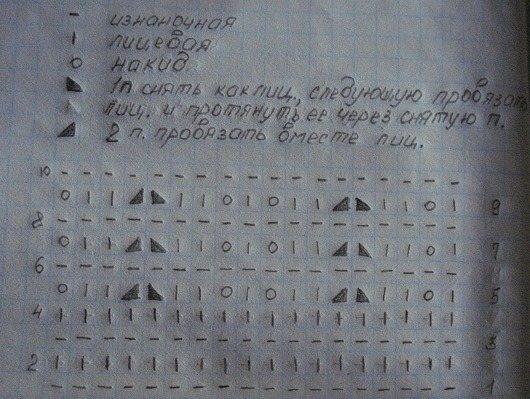 - изнаночная
| лицевая
o накид
◣ 1п снять как лиц., следующую провязать
лиц. и протянуть ее через снятую п.
◢ 2 п. провязать вместе лиц.
10 - - - - - - - - - - - - - - - - - -
o | | ◢ ◣ | | o | o | | ◢ ◣ | | o | 9
8 - - - - - - - - - - - - - - - - - -
o | | ◢ ◣ | | o | o | | ◢ ◣ | | o | 7
6 - - - - - - - - - - - - - - - - - -
o | | ◢ ◣ | | o | o | | ◢ ◣ | | o | 5
4 | | | | | | | | | | | | | | | | | |
- - - - - - - - - - - - - - - - - - 3
2 | | | | | | | | | | | | | | | | | |
- - - - - - - - - - - - - - - - - - 1